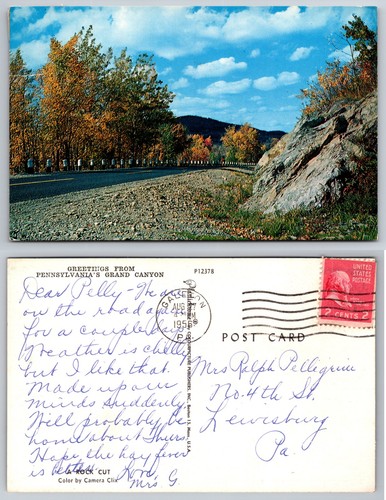 GREETINGS FROM
PENNSYLVANIA'S GRAND CANYON
P12378
Dear Pelly - Here
on the road again
for a couple days
Weather is chilly
but I like that.
Made up our
minds suddenly
Will probably be
home about Thurs
Hope the hay fever
is better. Love
Mrs G
A ROCK CUT
Color by Camera Clix
GALETON
AUG
1956
PA.
UNITED STATES
POSTAGE
2 CENTS 2
POST CARD
Mrs Ralph Pellegrini
No. 4th St.
Lewisburg
Pa.